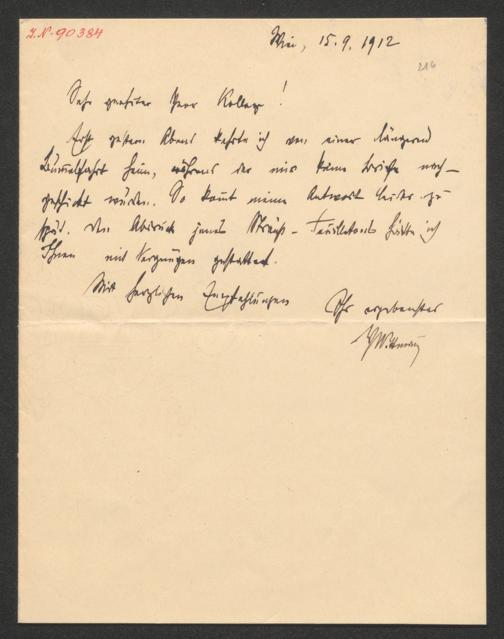 I.N. 90384
Wien, 15.9.1912
216
Sehr geehrter Herr Kollege!
Erst gestern Abend kehrte ich von einer längeren
Bummelfahrt heim, während der mir keine Briefe nach-
geschickt wurden. So kommt meine Antwort leider zu
spät. Den Abdruck jenes Strauß-Feuilletons hätte ich
Ihnen mit Vergnügen gestattet.
Mit herzlichen Empfehlungen
Ihr ergebenster
Wittmann